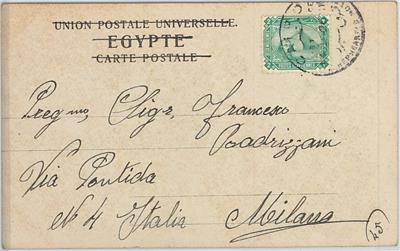 UNION POSTALE UNIVERSELLE.
EGYPTE
CARTE POSTALE
Preg mo Sigr Francesco
Badrizzani
Via Pontida
No 4 Italia Milano
45